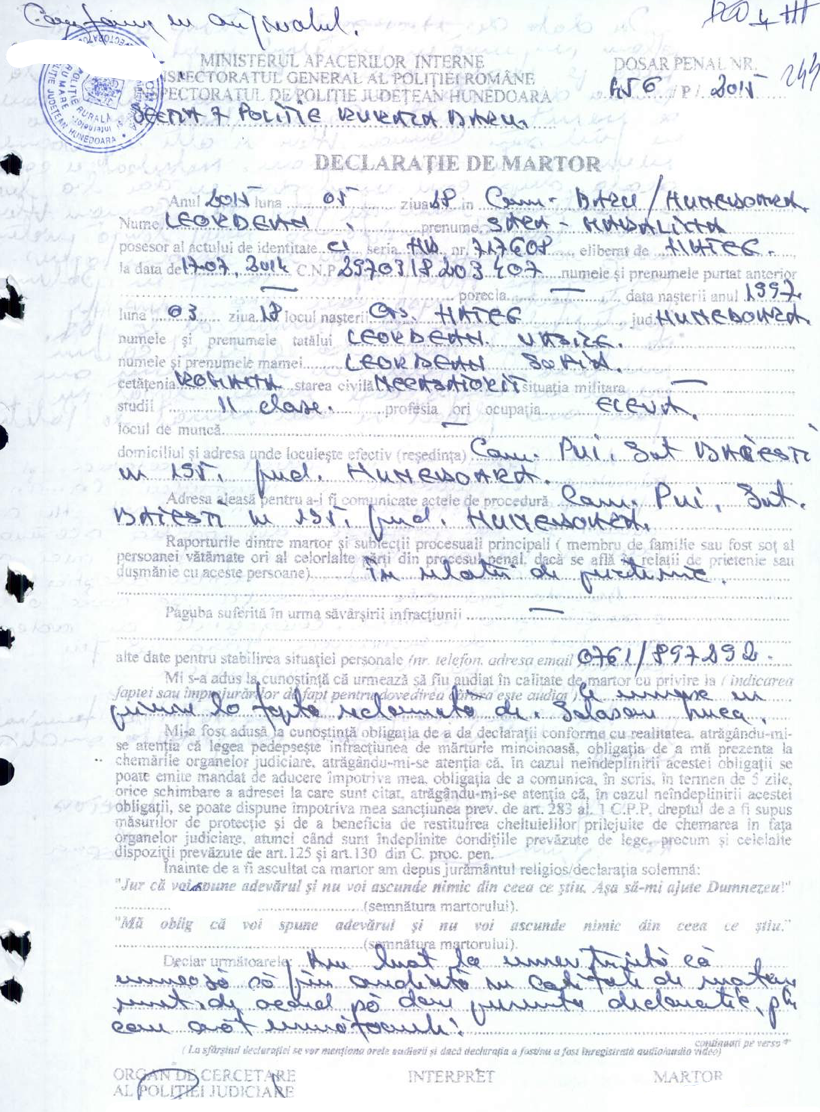 Conform cu originalul.
MINISTERUL AFACERILOR INTERNE
INSPECTORATUL GENERAL AL POLIȚIEI ROMÂNE
INSPECTORATUL DE POLIȚIE JUDEȚEAN HUNEDOARA
SECȚIA 7 POLIȚIE RURALĂ BARU
DOSAR PENAL NR.
/ P / 2015
244
DECLARAȚIE DE MARTOR
Anul 2015 luna 05 ziua 28 în Com. BARU / HUNEDOARA.
Nume LEORDEAN prenume SARA - MADALINA
posesor al actului de identitate CI seria HD nr. 717608 eliberat de HATEG.
la data de 17.07.2014 C.N.P 2970318203407 numele și prenumele purtat anterior
— porecla — data nașterii anul 1997
luna 03 ziua 18 locul nașterii Ors. HATEG jud. HUNEDOARA.
numele și prenumele tatălui LEORDEAN VASILE.
numele și prenumele mamei LEORDEAN SORIN
cetățenia ROMANA starea civilă NECASATORIT situația militara —
studii 11 clase. profesia ori ocupația ELEVA.
locul de muncă —
domiciliul și adresa unde locuiește efectiv (reședința) Com. Pui, Sat BAIESTI
nr 195, jud. HUNEDOARA.
Adresa aleasă pentru a-i fi comunicate actele de procedură Com. Pui, Sat.
BAIESTI nr 195, jud. HUNEDOARA.
Raporturile dintre martor și subiecții procesuali principali ( membru de familie sau fost soț al
persoanei vătămate ori al celorlalte părți din procesul penal, dacă se află în relatii de prietenie sau
dușmănie cu aceste persoane) în relatii de prietenie.
Paguba suferită în urma săvârșirii infracțiunii —
alte date pentru stabilirea situației personale /nr. telefon, adresa email 0761/897292.
Mi s-a adus la cunoștință că urmează să fiu audiat în calitate de martor cu privire la ( indicarea
faptei sau împrejurărilor de fapt pentru dovedirea cărora este audiat Ce cunosc cu
privire la fapta reclamata de
Mi-a fost adusă la cunoștință obligația de a da declarații conforme cu realitatea, atrăgându-mi-
se atenția că legea pedepsește infracțiunea de mărturie mincinoasă, obligația de a mă prezenta la
chemările organelor judiciare, atrăgându-mi-se atenția că, în cazul neîndeplinirii acestei obligații se
poate emite mandat de aducere împotriva mea, obligația de a comunica, în scris, în termen de 5 zile,
orice schimbare a adresei la care sunt citat, atrăgându-mi-se atenția că, în cazul neîndeplinirii acestei
obligații, se poate dispune împotriva mea sancțiunea prev. de art. 283 al. 1 C.P.P, dreptul de a fi supus
măsurilor de protecție și de a beneficia de restituirea cheltuielilor prilejuite de chemarea în fața
organelor judiciare, atunci când sunt îndeplinite condițiile prevăzute de lege, precum și celelalte
dispoziții prevăzute de art.125 și art.130 din C. proc. pen.
Înainte de a fi ascultat ca martor am depus jurământul religios/declarația solemnă:
"Jur că voi spune adevărul și nu voi ascunde nimic din ceea ce știu. Așa să-mi ajute Dumnezeu!"
(semnătura martorului).
"Mă oblig că voi spune adevărul și nu voi ascunde nimic din ceea ce știu."
(semnătura martorului).
Declar următoarele: Am luat la cunoștință că
urmează să fiu audiată în calitate de martor
sunt de acord să dau prezenta declaratie, pri
care arăt următoarele:
continuați pe verso *
( La sfârșitul declarației se vor menționa orele audierii și dacă declarația a fost/nu a fost înregistrată audio/audio video)
ORGAN DE CERCETARE INTERPRET MARTOR
AL POLIȚIEI JUDICIARE